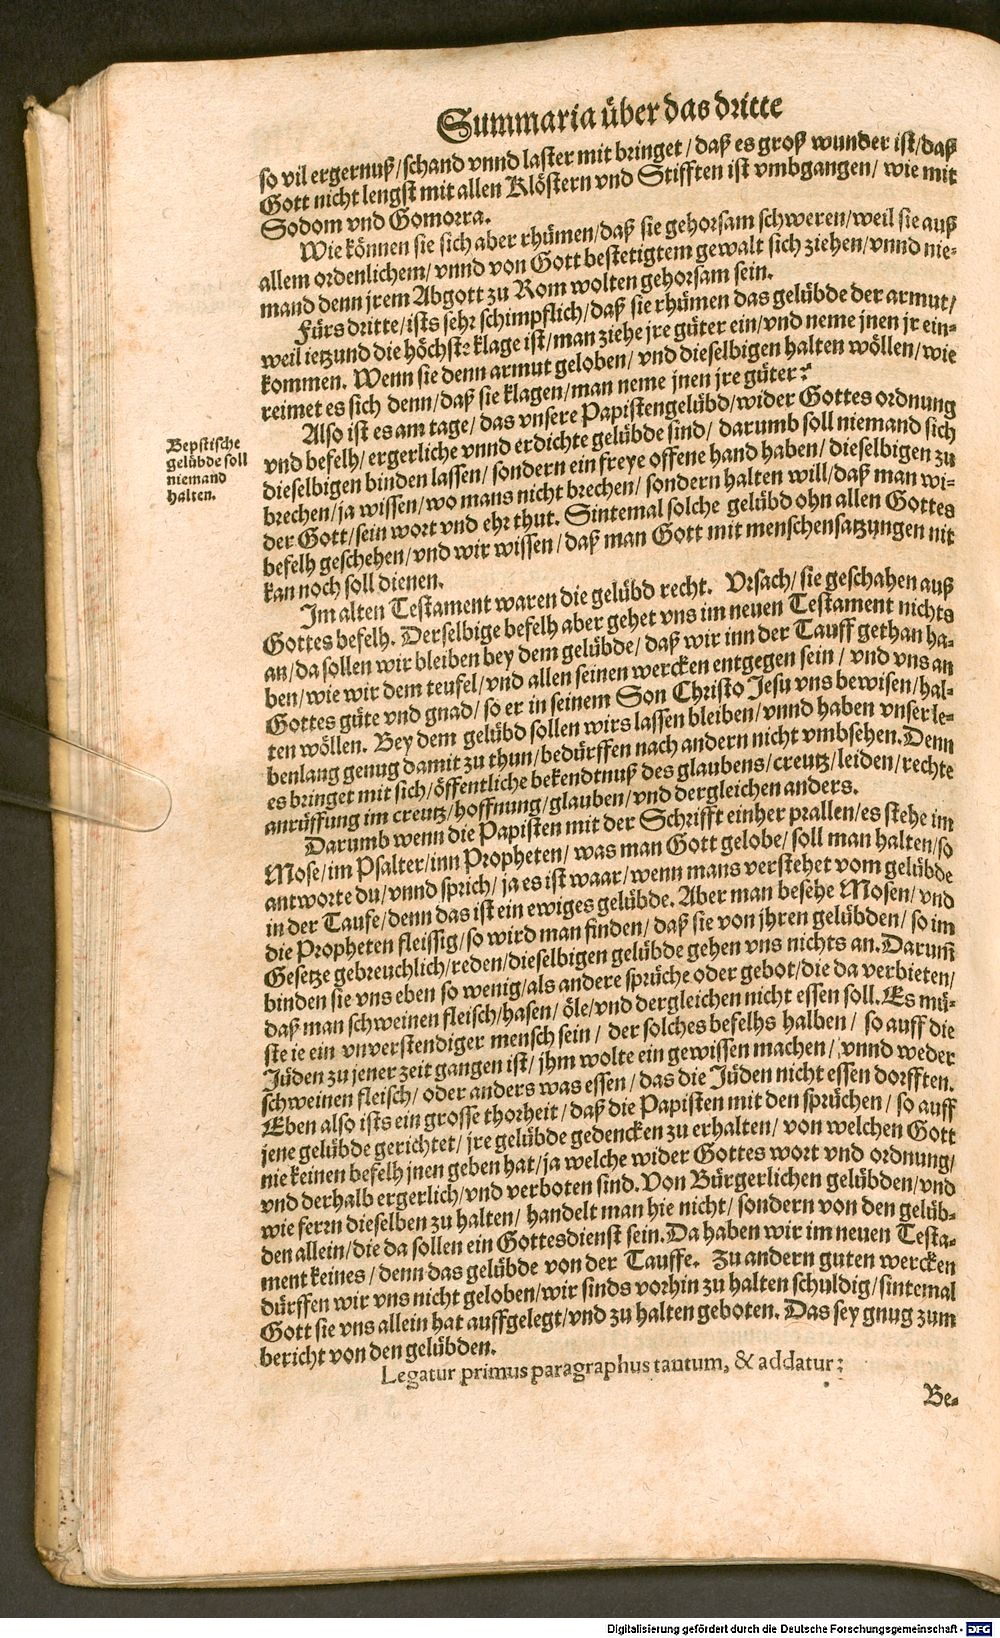 Summaria über das dritte
so vil ergernuß/schand vnnd laster mit bringet/daß es groß wunder ist/daß
Gott nicht lengst mit allen Klöstern vnd Stifften ist vmbgangen/wie mit
Sodom vnd Gomorra.
Wie können sie sich aber rhümen/daß sie gehorsam schweren/weil sie auß
allem ordenlichem/vnnd von Gott bestetigtem gewalt sich ziehen/vnnd nie-
mand denn jrem Abgott zu Rom wolten gehorsam sein.
Fürs dritte/ists sehr schimpflich/daß sie rhümen das gelübde der armut/
weil ietzund die höchste klage ist/man ziehe jre güter ein/vnd neme jnen jr ein-
kommen. Wenn sie denn armut geloben/vnd dieselbigen halten wöllen/wie
reimet es sich denn/daß sie klagen/man neme jnen jre güter?
Also ist es am tage/das vnsere Papistengelübd/wider Gottes ordnung
vnd befelh/ergerliche vnnd erdichte gelübde sind/darumb soll niemand sich
dieselbigen binden lassen/sondern ein freye offene hand haben/dieselbigen zu
brechen/ja wissen/wo mans nicht brechen/sondern halten will/daß man wi-
der Gott/sein wort vnd ehr thut. Sintemal solche gelübd ohn allen Gottes
befelh geschehen/vnd wir wissen/daß man Gott mit menschensatzungen nit
kan noch soll dienen.
Bepstische
gelübde soll
niemand
halten.
Im alten Testament waren die gelübd recht. Vrsach/sie geschahen auß
Gottes befelh. Derselbige befelh aber gehet vns im neuen Testament nichts
an/da sollen wir bleiben bey dem gelübde/daß wir inn der Tauff gethan ha-
ben/wie wir dem teufel/vnd allen seinen wercken entgegen sein/vnd vns an
Gottes güte vnd gnad/so er in seinem Son Christo Jesu vns bewisen/hal-
ten wöllen. Bey dem gelübd sollen wirs lassen bleiben/vnnd haben vnser le-
benlang genug damit zu thun/bedürffen nach andern nicht vmbsehen. Denn
es bringet mit sich/öffentliche bekendtnuß des glaubens/creutz/leiden/rechte
anrüffung im creutz/hoffnung/glauben/vnd dergleichen anders.
Darumb wenn die Papisten mit der Schrifft einher prallen/es stehe im
Mose/im Psalter/inn Propheten/was man Gott gelobe/soll man halten/so
antworte du/vnnd sprich/ja es ist waar/wenn mans verstehet vom gelübde
in der Taufe/denn das ist ein ewiges gelübde. Aber man besehe Mosen/vnd
die Propheten fleissig/so wird man finden/daß sie von jhren gelübden/so im
Gesetze gebreuchlich/reden/dieselbigen gelübde gehen vns nichts an. Darum̃
binden sie vns eben so wenig/als andere sprüche oder gebot/die da verbieten/
daß man schweinen fleisch/hasen/öle/vnd dergleichen nicht essen soll. Es mü-
ste ie ein vnverstendiger mensch sein/der solches befelhs halben/so auff die
Jüden zu jener zeit gangen ist/jhm wolte ein gewissen machen/vnnd weder
schweinen fleisch/oder anders was essen/das die Jüden nicht essen dorfften.
Eben also ists ein grosse thorheit/daß die Papisten mit den sprüchen/so auff
jene gelübde gerichtet/jre gelübde gedencken zu erhalten/von welchen Gott
nie keinen befelh jnen geben hat/ja welche wider Gottes wort vnd ordnung/
vnd derhalb ergerlich/vnd verboten sind. Von Bürgerlichen gelübden/vnd
wie ferrn dieselben zu halten/handelt man hie nicht/sondern von den gelüb-
den allein/die da sollen ein Gottesdienst sein. Da haben wir im neuen Testa-
ment keines/denn das gelübde von der Tauffe. Zu andern guten wercken
dürffen wir vns nicht geloben/wir sinds vorhin zu halten schuldig/sintemal
Gott sie vns allein hat auffgelegt/vnd zu halten geboten. Das sey gnug zum
bericht von den gelübden.
Legatur primus paragraphus tantum, & addatur:
Be-
Digitalisierung gefördert durch die Deutsche Forschungsgemeinschaft - DFG